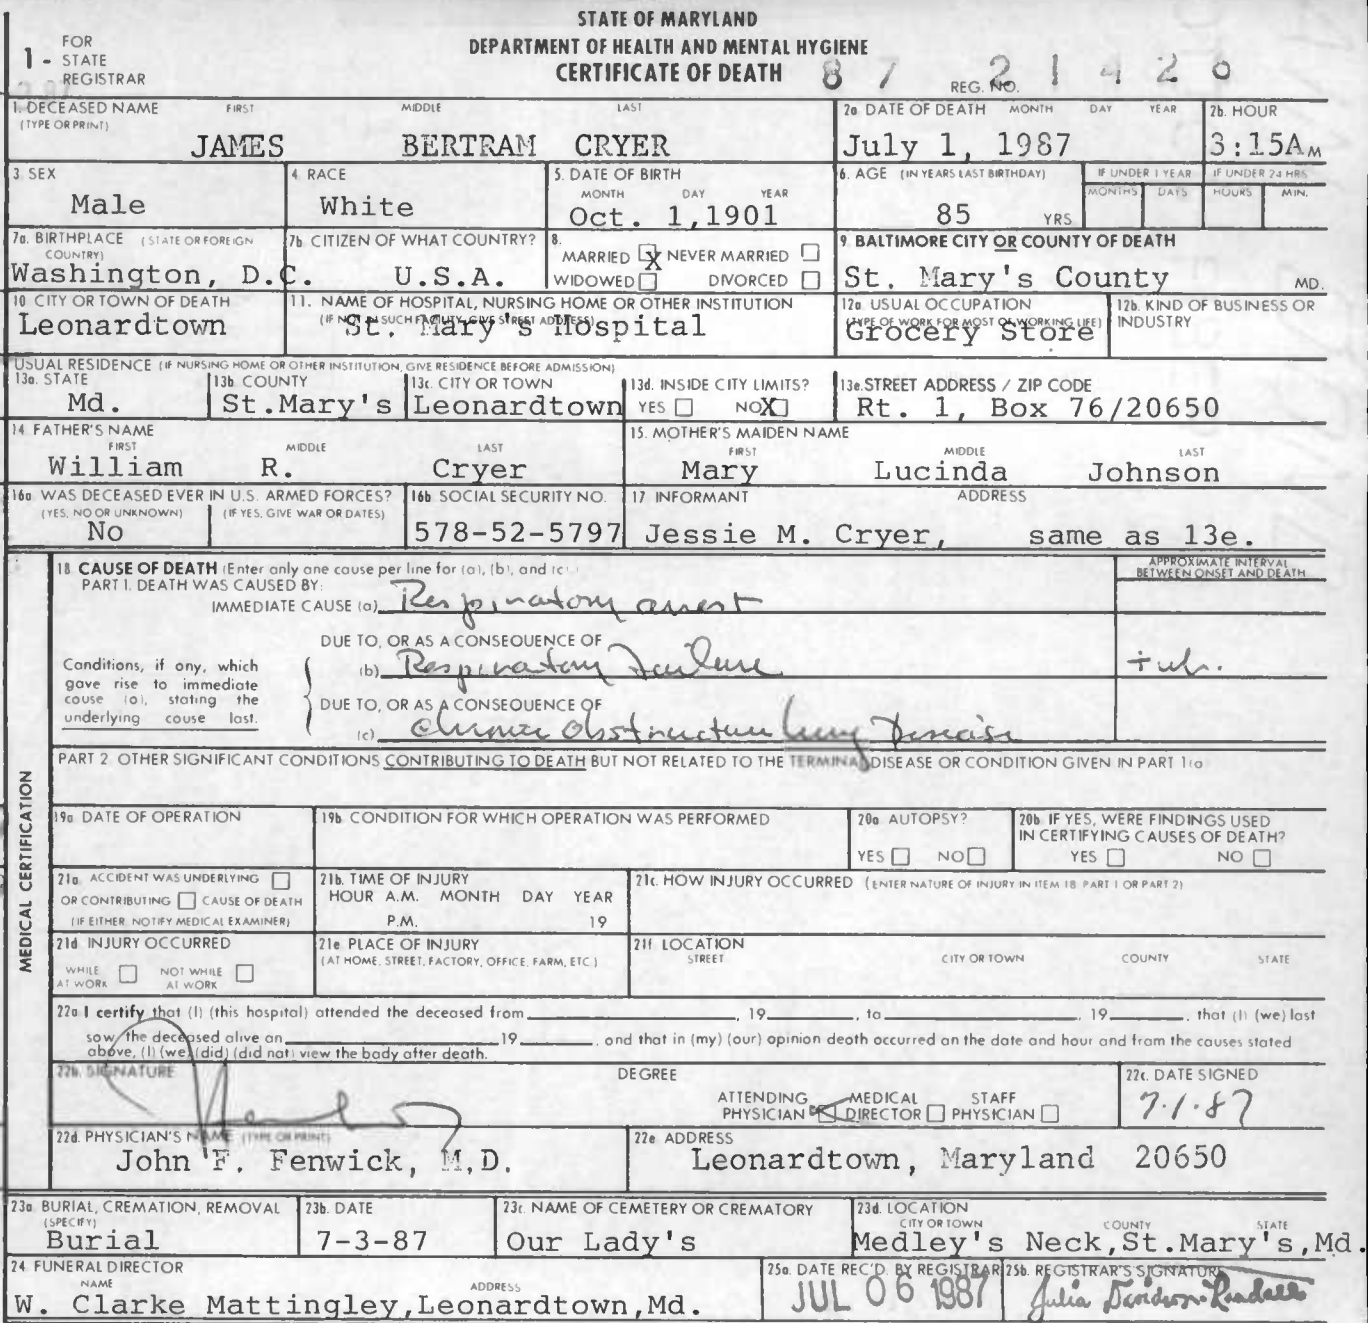 STATE OF MARYLAND
DEPARTMENT OF HEALTH AND MENTAL HYGIENE
CERTIFICATE OF DEATH
1- FOR STATE REGISTRAR
87 21426
REG. NO.
1. DECEASED NAME FIRST MIDDLE LAST
(TYPE OR PRINT)
JAMES BERTRAM CRYER
2a. DATE OF DEATH MONTH DAY YEAR
July 1, 1987
2b. HOUR
3:15A M
3. SEX
Male
4. RACE
White
5. DATE OF BIRTH
MONTH DAY YEAR
Oct. 1,1901
6. AGE (IN YEARS LAST BIRTHDAY)
85 YRS
IF UNDER 1 YEAR
MONTHS DAYS
IF UNDER 24 HRS
HOURS MIN.
7a. BIRTHPLACE (STATE OR FOREIGN COUNTRY)
Washington, D.C.
7b. CITIZEN OF WHAT COUNTRY?
U.S.A.
8.
MARRIED X NEVER MARRIED
WIDOWED DIVORCED
9. BALTIMORE CITY OR COUNTY OF DEATH
St. Mary's County MD.
10. CITY OR TOWN OF DEATH
Leonardtown
11. NAME OF HOSPITAL, NURSING HOME OR OTHER INSTITUTION
(IF NOT IN SUCH FACILITY, GIVE STREET ADDRESS)
St. Mary's Hospital
12a. USUAL OCCUPATION
(TYPE OF WORK FOR MOST OF WORKING LIFE)
Grocery Store
12b. KIND OF BUSINESS OR INDUSTRY
USUAL RESIDENCE (IF NURSING HOME OR OTHER INSTITUTION, GIVE RESIDENCE BEFORE ADMISSION)
13a. STATE
Md.
13b. COUNTY
St.Mary's
13c. CITY OR TOWN
Leonardtown
13d. INSIDE CITY LIMITS?
YES NO X
13e. STREET ADDRESS / ZIP CODE
Rt. 1, Box 76/20650
14. FATHER'S NAME
FIRST MIDDLE LAST
William R. Cryer
15. MOTHER'S MAIDEN NAME
FIRST MIDDLE LAST
Mary Lucinda Johnson
16a. WAS DECEASED EVER IN U.S. ARMED FORCES?
(YES, NO OR UNKNOWN) (IF YES, GIVE WAR OR DATES)
No
16b. SOCIAL SECURITY NO.
578-52-5797
17. INFORMANT ADDRESS
Jessie M. Cryer, same as 13e.
MEDICAL CERTIFICATION
18. CAUSE OF DEATH (Enter only one cause per line for (a), (b), and (c).)
PART I. DEATH WAS CAUSED BY:
APPROXIMATE INTERVAL BETWEEN ONSET AND DEATH
IMMEDIATE CAUSE (a) Respiratory arrest
DUE TO, OR AS A CONSEQUENCE OF
(b) Respiratory Failure
Conditions, if any, which gave rise to immediate cause (a), stating the underlying cause last.
DUE TO, OR AS A CONSEQUENCE OF
(c) Chronic Obstructive lung Disease
PART 2. OTHER SIGNIFICANT CONDITIONS CONTRIBUTING TO DEATH BUT NOT RELATED TO THE TERMINAL DISEASE OR CONDITION GIVEN IN PART 1(a)
19a. DATE OF OPERATION
19b. CONDITION FOR WHICH OPERATION WAS PERFORMED
20a. AUTOPSY?
YES NO
20b. IF YES, WERE FINDINGS USED IN CERTIFYING CAUSES OF DEATH?
YES NO
21a. ACCIDENT WAS UNDERLYING
OR CONTRIBUTING CAUSE OF DEATH
(IF EITHER, NOTIFY MEDICAL EXAMINER)
21b. TIME OF INJURY
HOUR A.M. MONTH DAY YEAR
P.M. 19
21c. HOW INJURY OCCURRED (ENTER NATURE OF INJURY IN ITEM 18 PART 1 OR PART 2)
21d. INJURY OCCURRED
WHILE AT WORK NOT WHILE AT WORK
21e. PLACE OF INJURY
(AT HOME, STREET, FACTORY, OFFICE, FARM, ETC.)
21f. LOCATION
STREET CITY OR TOWN COUNTY STATE
22a. I certify that (I) (this hospital) attended the deceased from , 19 , to , 19 , that (I) (we) last
saw the deceased alive on 19 , and that in (my) (our) opinion death occurred on the date and hour and from the causes stated
above, (I) (we) (did) (did not) view the body after death.
22b. SIGNATURE DEGREE
ATTENDING PHYSICIAN MEDICAL DIRECTOR STAFF PHYSICIAN
22c. DATE SIGNED
7-1-87
22d. PHYSICIAN'S NAME (TYPE OR PRINT)
John F. Fenwick, M.D.
22e. ADDRESS
Leonardtown, Maryland 20650
23a. BURIAL, CREMATION, REMOVAL
(SPECIFY)
Burial
23b. DATE
7-3-87
23c. NAME OF CEMETERY OR CREMATORY
Our Lady's
23d. LOCATION
CITY OR TOWN COUNTY STATE
Medley's Neck,St.Mary's,Md.
24. FUNERAL DIRECTOR
NAME ADDRESS
W. Clarke Mattingley,Leonardtown,Md.
25a. DATE REC'D. BY REGISTRAR
JUL 06 1987
25b. REGISTRAR'S SIGNATURE
Julia Davidson-Randall